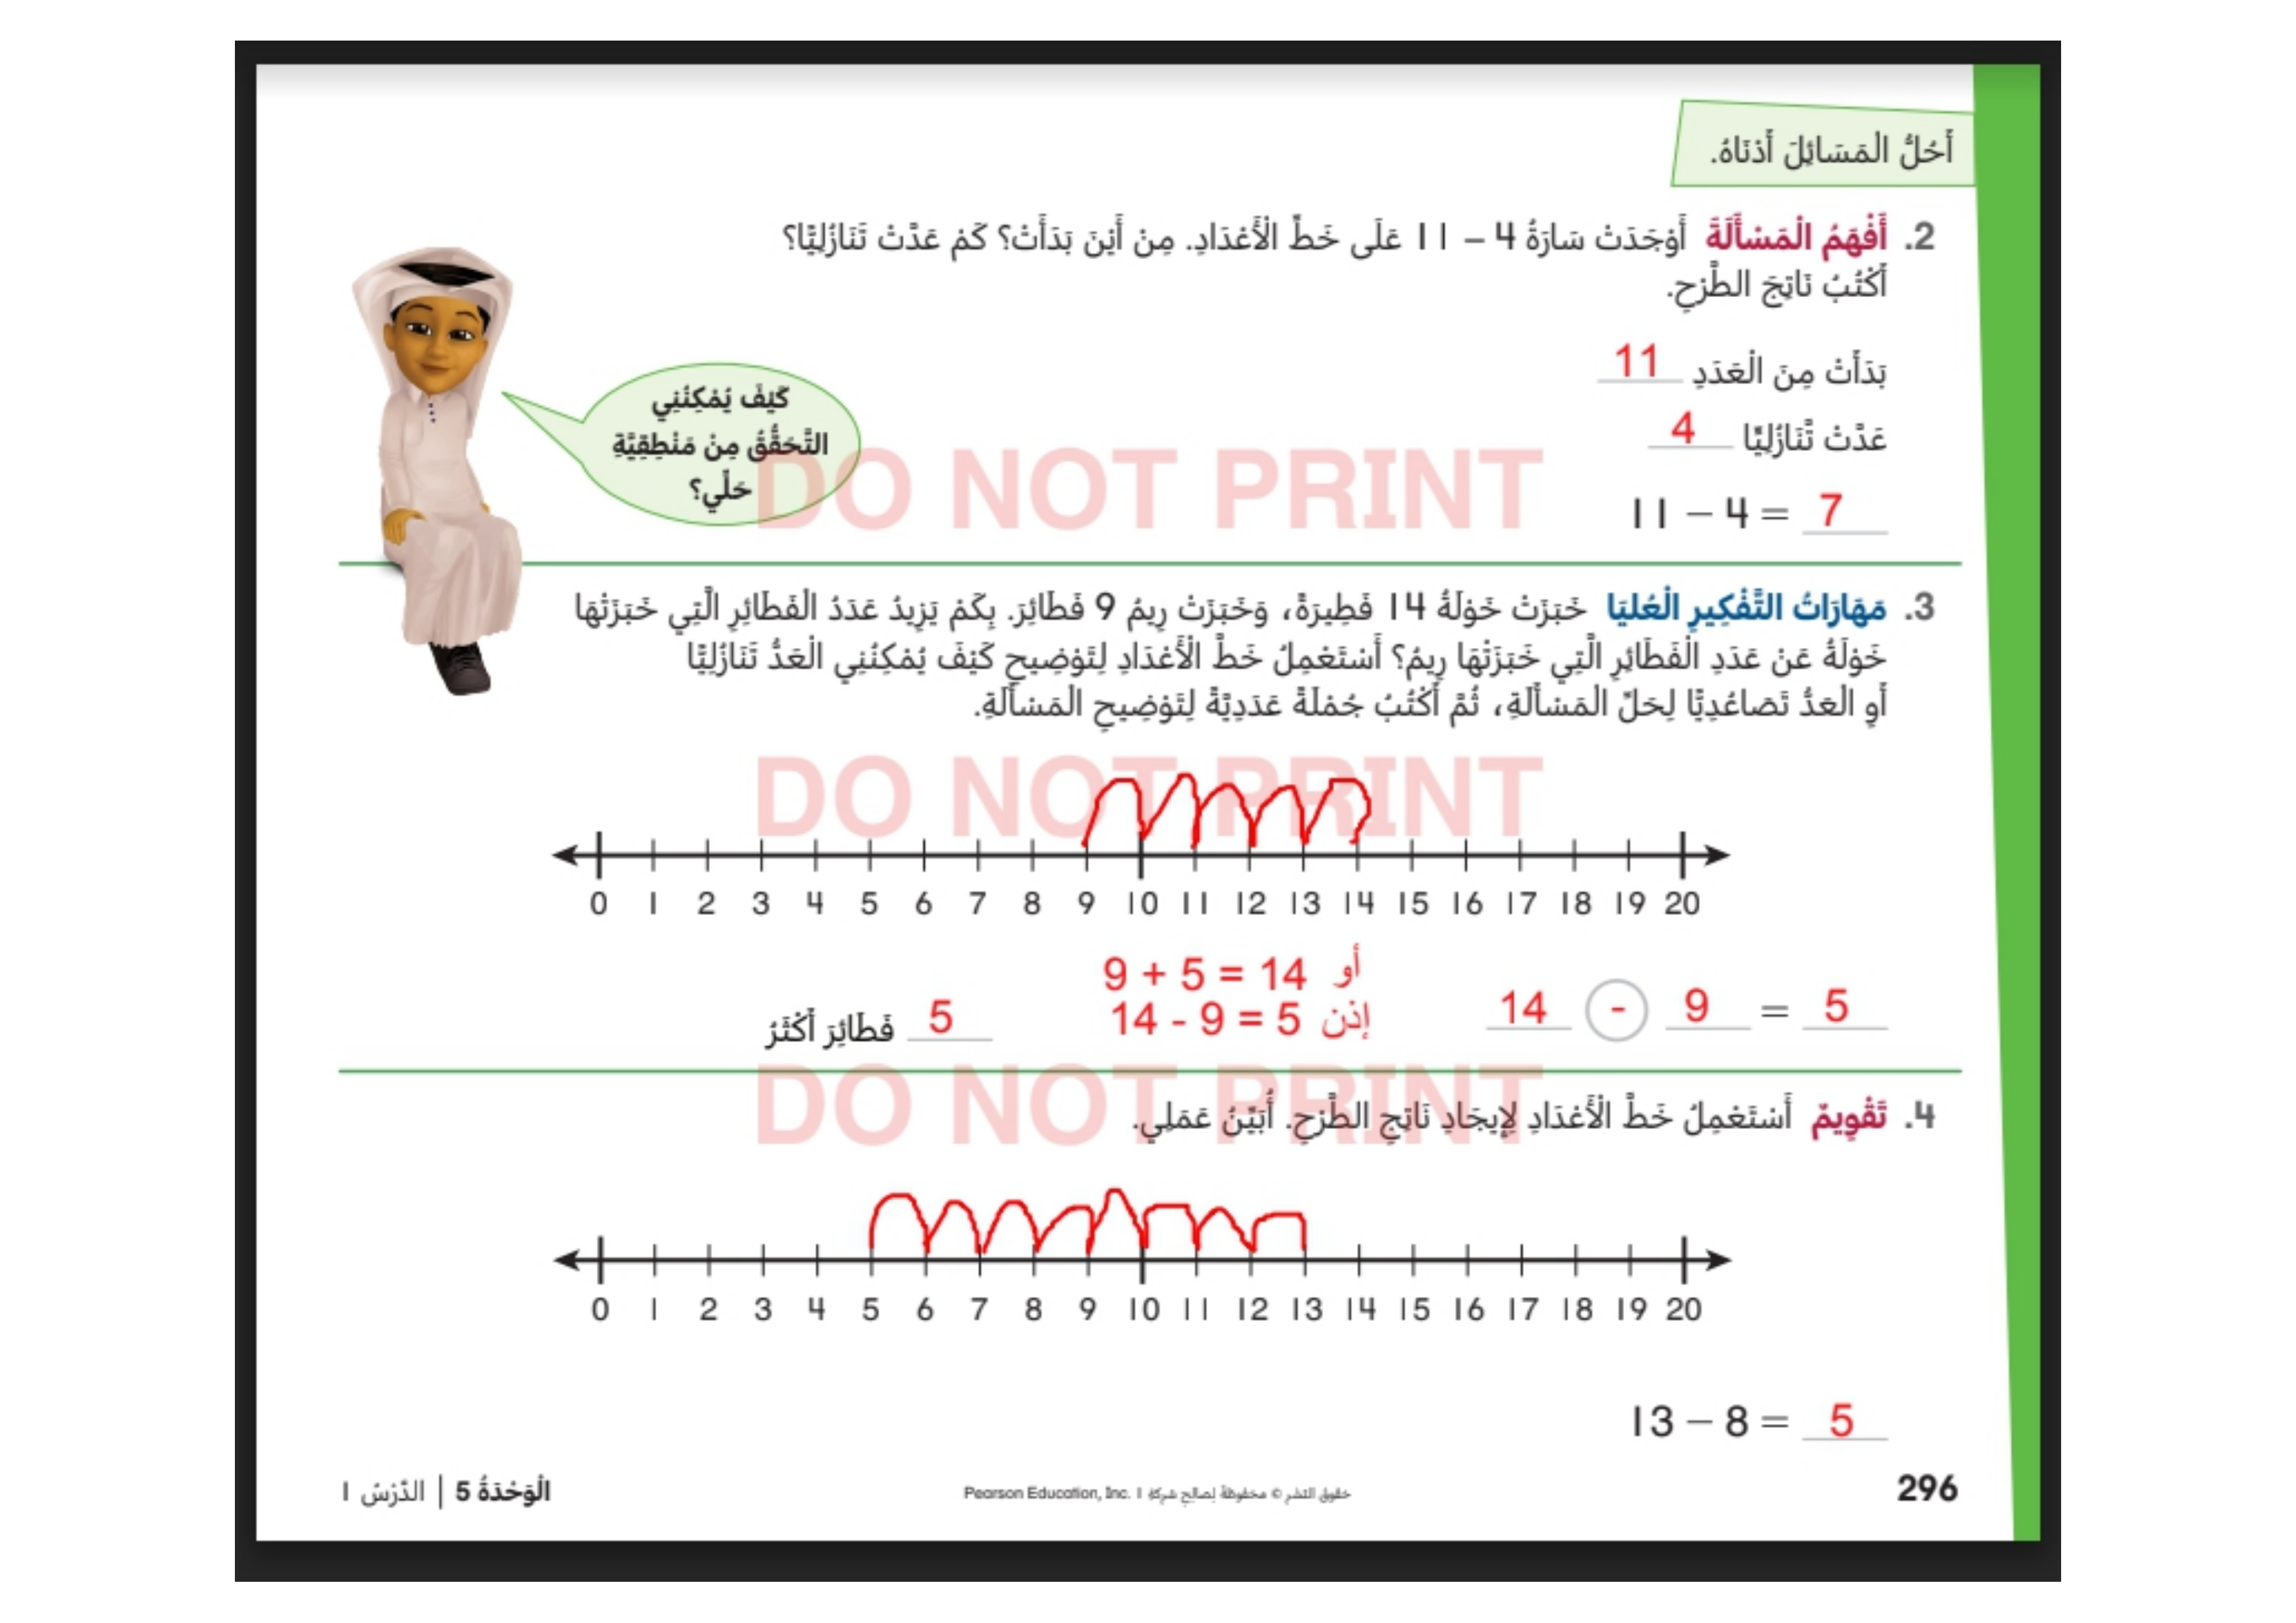 أَحُلُّ الْمَسَائِلَ أَدْنَاهُ.
2. أَفْهَمُ الْمَسْأَلَةَ أَوْجَدَتْ سَارَةُ 4 – 11 عَلَى خَطِّ الْأَعْدَادِ. مِنْ أَيْنَ بَدَأَتْ؟ كَمْ عَدَّتْ تَنَازُلِيًّا؟
أَكْتُبُ نَاتِجَ الطَّرْحِ.
بَدَأَتْ مِنَ الْعَدَدِ 11
عَدَّتْ تَنَازُلِيًّا 4
11 – 4 = 7
كَيْفَ يُمْكِنُنِي
التَّحَقُّقُ مِنْ مَنْطِقِيَّةِ
حَلِّي؟
DO NOT PRINT
3. مَهَارَاتُ التَّفْكِيرِ الْعُليَا خَبَزَتْ خَوْلَةُ 14 فَطِيرَةً، وَخَبَزَتْ رِيمُ 9 فَطَائِرَ. بِكَمْ يَزِيدُ عَدَدُ الْفَطَائِرِ الَّتِي خَبَزَتْهَا
خَوْلَةُ عَنْ عَدَدِ الْفَطَائِرِ الَّتِي خَبَزَتْهَا رِيمُ؟ أَسْتَعْمِلُ خَطَّ الْأَعْدَادِ لِتَوْضِيحِ كَيْفَ يُمْكِنُنِي الْعَدُّ تَنَازُلِيًّا
أَوِ الْعَدُّ تَصَاعُدِيًّا لِحَلِّ الْمَسْأَلَةِ، ثُمَّ أَكْتُبُ جُمْلَةً عَدَدِيَّةً لِتَوْضِيحِ الْمَسْأَلَةِ.
DO NOT PRINT
0 1 2 3 4 5 6 7 8 9 10 11 12 13 14 15 16 17 18 19 20
14 - 9 = 5
أو 9 + 5 = 14
إذن 14 - 9 = 5
5 فَطَائِرَ أَكْثَرُ
DO NOT PRINT
4. تَقْوِيمٌ أَسْتَعْمِلُ خَطَّ الْأَعْدَادِ لِإِيجَادِ نَاتِجِ الطَّرْحِ. أُبَيِّنُ عَمَلِي.
0 1 2 3 4 5 6 7 8 9 10 11 12 13 14 15 16 17 18 19 20
13 – 8 = 5
296
حقوق النشر © محفوظة لصالح شركة Pearson Education, Inc. 1
الْوَحْدَةُ 5 | الدَّرْسُ 1